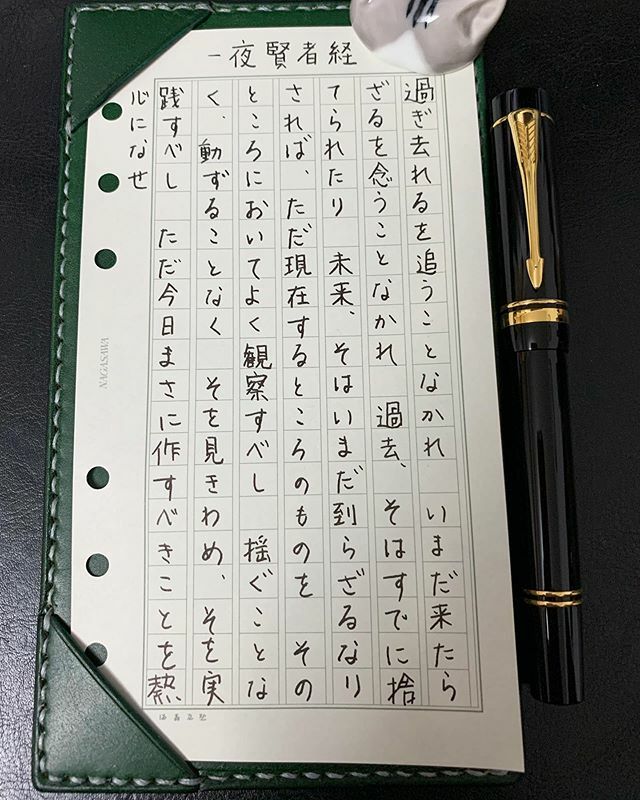 一夜賢者経
過ぎ去れるを追うことなかれ　いまだ来たら
ざるを念うことなかれ　過去、そはすでに捨
てられたり　未来、そはいまだ到らざるなり
されば、ただ現在するところのものを　その
ところにおいてよく観察すべし　揺ぐことな
く、動ずることなく　そを見きわめ、そを実
践すべし　ただ今日まさに作すべきことを熱
心になせ
NAGASAWA